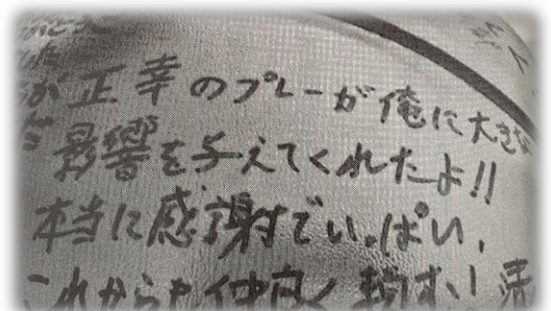 正幸のプレーが俺に大きな
影響を与えてくれたよ!!
本当に感謝でいっぱい,
これからも仲良く頼む!